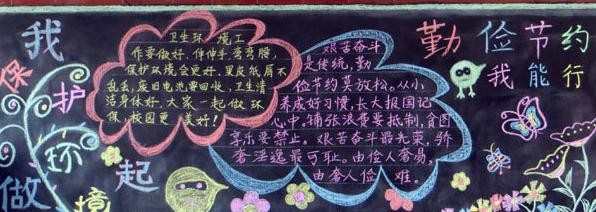 我
保护
环境
做起
卫生环境工
作要做好，伸伸手，弯弯腰，
保护环境全更好。果皮纸屑不
乱丢，废旧电池要回收，卫生清
洁身体好。大家一起做环
保，校园更美好！
艰苦奋斗
是传统，勤
俭节约莫放松。从小
养成好习惯，长大报国记
心中。铺张浪费要抵制，贪图
享乐要禁止。艰苦奋斗最光荣，骄
奢淫逸最可耻。由俭入奢易，
由奢入俭难。
勤俭节约
我能行